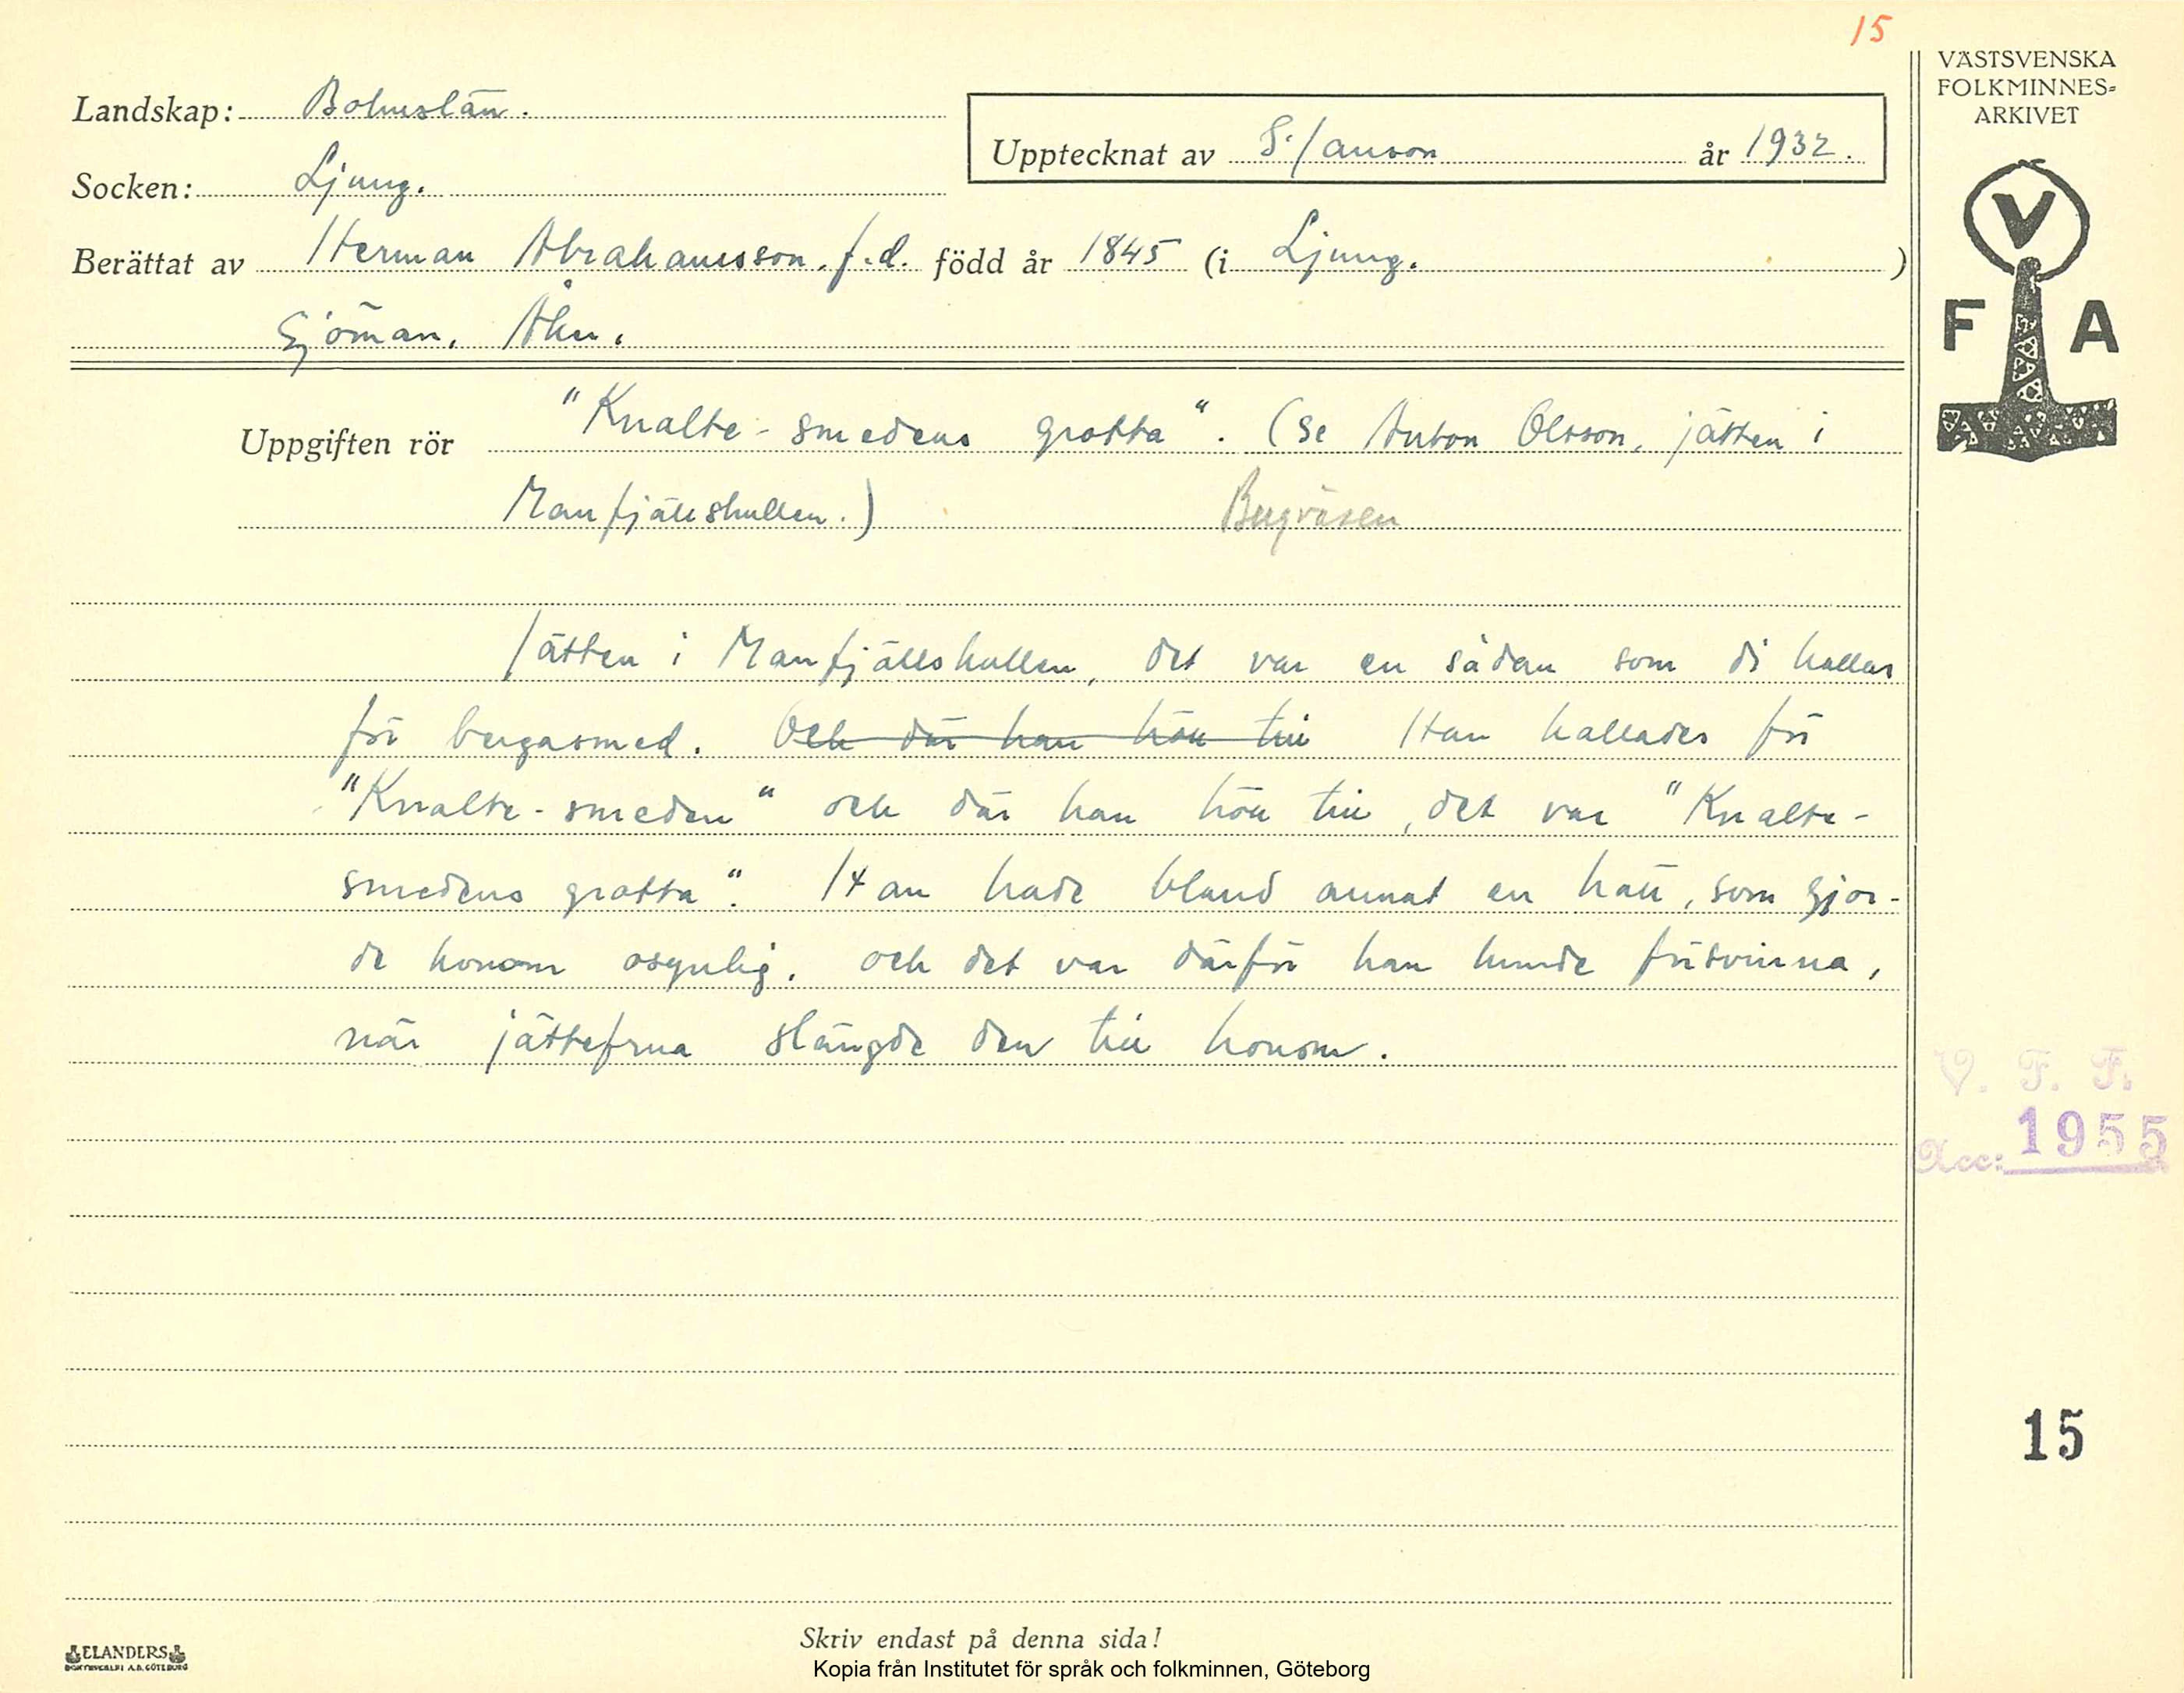 15
VÄSTSVENSKA
FOLKMINNES-
ARKIVET
Landskap: Bohuslän.
Upptecknat av S. Janson år 1932.
Socken: Ljung.
Berättat av Herman Abrahamsson. f.d. född år 1845 (i Ljung. )
Sjöman. Åhn.
V
F A
Uppgiften rör "Knalte-smedens grotta". (Se Anton Olsson, jätten i
Manfjällskullen.) Bergväsen
Jätten i Manfjällskullen, det var en sådan som di kallar
för bergasmed. Och där han höll till Han kallades för
"Knalte-smeden" och där han höll till, det var "Knalte-
smedens grotta". Han hade bland annat en hatt, som gjor-
de honom osynlig. och det var därför han kunde försvinna,
när jättefrua slängde den till honom.
V. F. F.
Acc: 1955
15
Skriv endast på denna sida!
ELANDERS
BOKTRYCKERI A.B. GÖTEBORG
Kopia från Institutet för språk och folkminnen, Göteborg